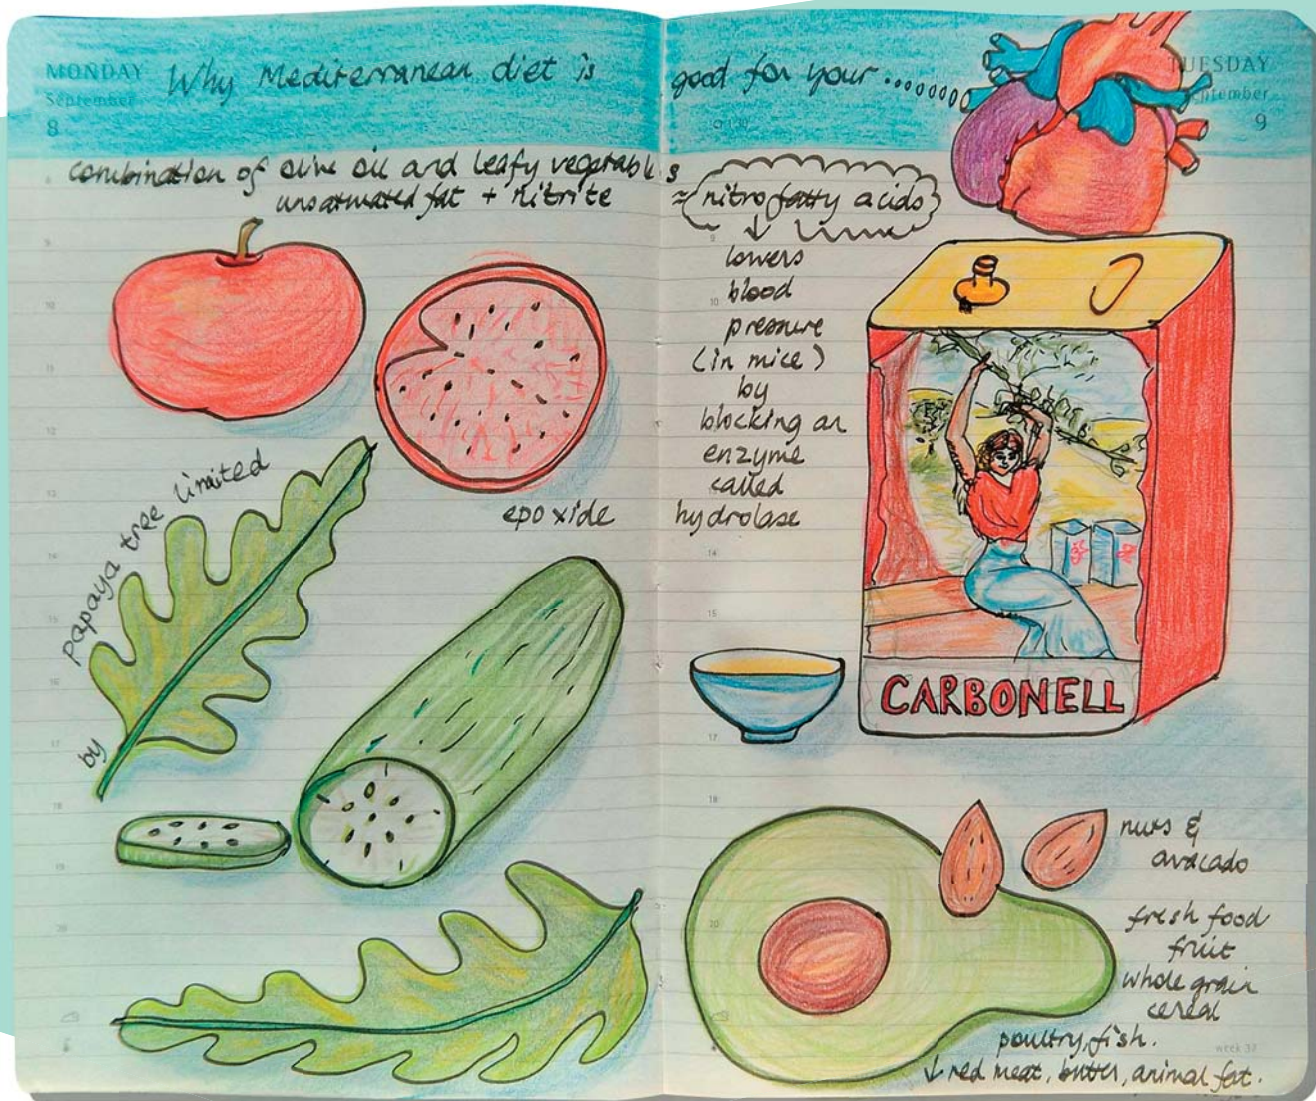 MONDAY
September
8
Why Mediterranean diet is good for your ........
TUESDAY
September
9
combination of olive oil and leafy vegetables
unsaturated fat + nitrite = nitro fatty acids
↓
lowers
blood
pressure
(in mice)
by
blocking an
enzyme
called
epoxide hydrolase
by papaya tree limited
CARBONELL
nuts &
avacado
fresh food
fruit
whole grain
cereal
poultry, fish.
↓ red meat, butter, animal fat.
week 37
9
10
11
12
13
14
15
16
17
18
19
20
9
10
14
15
17
18
20